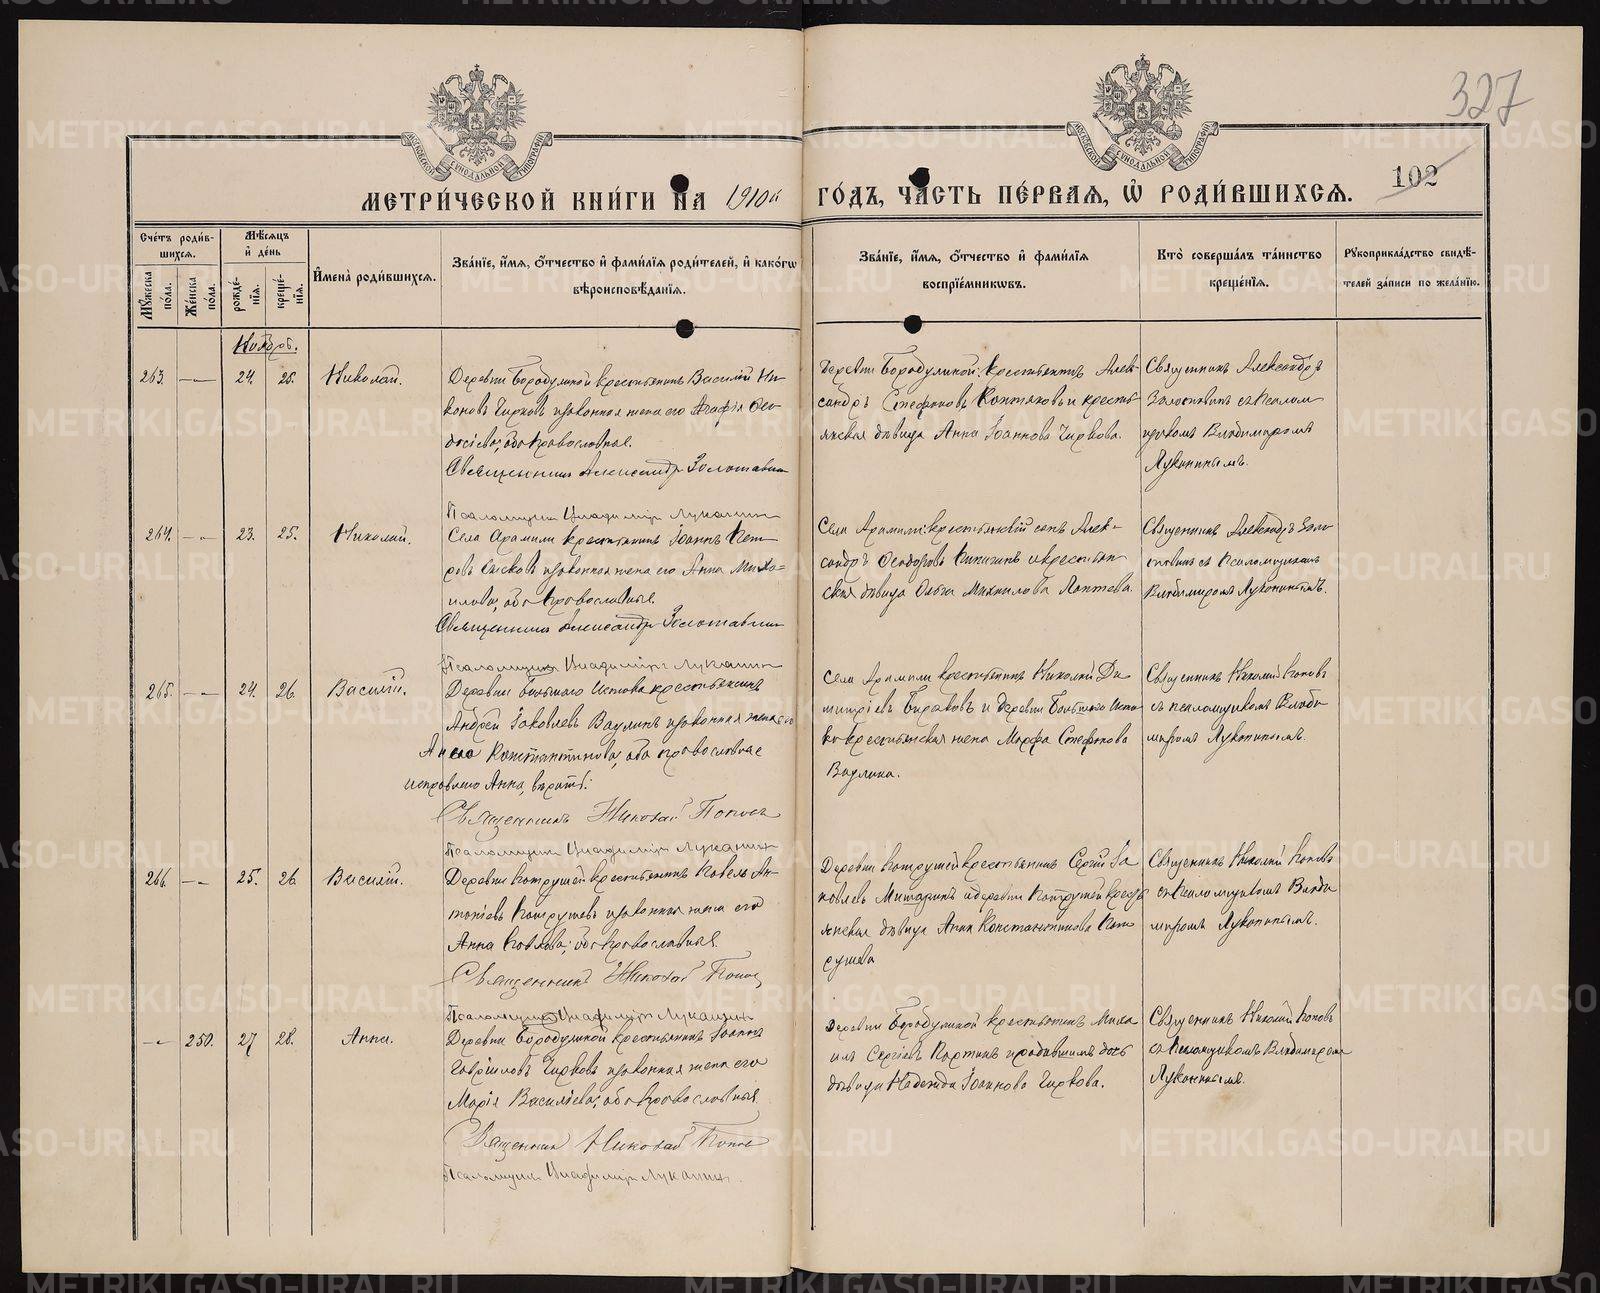 327
102
МЕТРИЧЕСКОЙ КНИГИ НА 1910й ГОДЪ, ЧАСТЬ ПЕРВАЯ, Ѡ РОДИВШИХСЯ.
Счетъ родив-
шихся.
Мужеска пола.
Женска пола.
Мѣсяцъ
и день
рожде-
нія.
креще-
нія.
Имена родившихся.
Званіе, имя, отчество и фамилія родителей, и какогѡ
вѣроисповѣданія.
Званіе, имя, отчество и фамилія
воспріемниковъ.
Кто совершалъ таинство
крещенія.
Рукоприкладство свидѣ-
телей записи по желанію.
Ноябрь.
263. 24. 25. Николай.
Деревни Бородулиной крестьянинъ Василій Ни-
коновъ Чирковъ и законная жена его Агафія Ѳео-
досіева; оба православные.
Священникъ Александръ Золотавинъ
Псаломщикъ Владиміръ Луканинъ
Деревни Бородулиной крестьянинъ Алек-
сандръ Стефановъ Коптяковъ и кресть-
янская дѣвица Анна Іоаннова Чиркова.
Священникъ Александръ
Золотавинъ съ псалом-
щикомъ Владиміромъ
Луканинымъ.
264. 23. 25. Николай.
Села Арамили крестьянинъ Іоаннъ Пет-
ровъ и законная жена его Анна Миха-
илова; оба православные.
Священникъ Александръ Золотавинъ
Псаломщикъ Владиміръ Луканинъ
Села Арамили: крестьянскій сынъ Алек-
сандръ Ѳеодоровъ и крестьян-
ская дѣвица Ольга Михаилова Лаптева.
Священникъ Александръ Золо-
тавинъ съ псаломщикомъ
Владиміромъ Луканинымъ.
265. 24. 26. Василій.
Деревни Большого Истока крестьянинъ
Андрей Іаковлевъ Ваулинъ и законная жена его
Анна Константинова, оба православные
исправлено Анна, вѣрить:
Священникъ Николай Поповъ
Псаломщикъ Владиміръ Луканинъ
Села Арамили крестьянинъ Николай Ди-
митріевъ Бирюковъ и деревни Большого Исто-
ка крестьянская жена Марфа Стефанова
Ваулина.
Священникъ Николай Поповъ
съ псаломщикомъ Влади-
міромъ Луканинымъ.
266. 25. 26. Василій.
Деревни Патрушей крестьянинъ Павелъ Ан-
тоніевъ Патрушевъ и законная жена его
Анна Павлова; оба православные.
Священникъ Николай Поповъ
Псаломщикъ Владиміръ Луканинъ
Деревни Патрушей крестьянинъ Сергій Іа-
ковлевъ Мишаринъ и деревни Патрушей кресть-
янская дѣвица Анна Константинова Пат-
рушева
Священникъ Николай Поповъ
съ псаломщикомъ Влади-
міромъ Луканинымъ.
250. 27 28. Анна.
Деревни Бородулиной крестьянинъ Іоаннъ
Гавріиловъ Чирковъ и законная жена его
Марія Василіева; оба православные
Священникъ Николай Поповъ
Псаломщикъ Владиміръ Луканинъ.
Деревни Бородулиной крестьянинъ Миха-
илъ Сергіевъ дочь
дѣвица Надежда Іоаннова Чиркова.
Священникъ Николай Поповъ
съ псаломщикомъ Владиміромъ
Луканинымъ.
METRIKI.GASO-URAL.RU